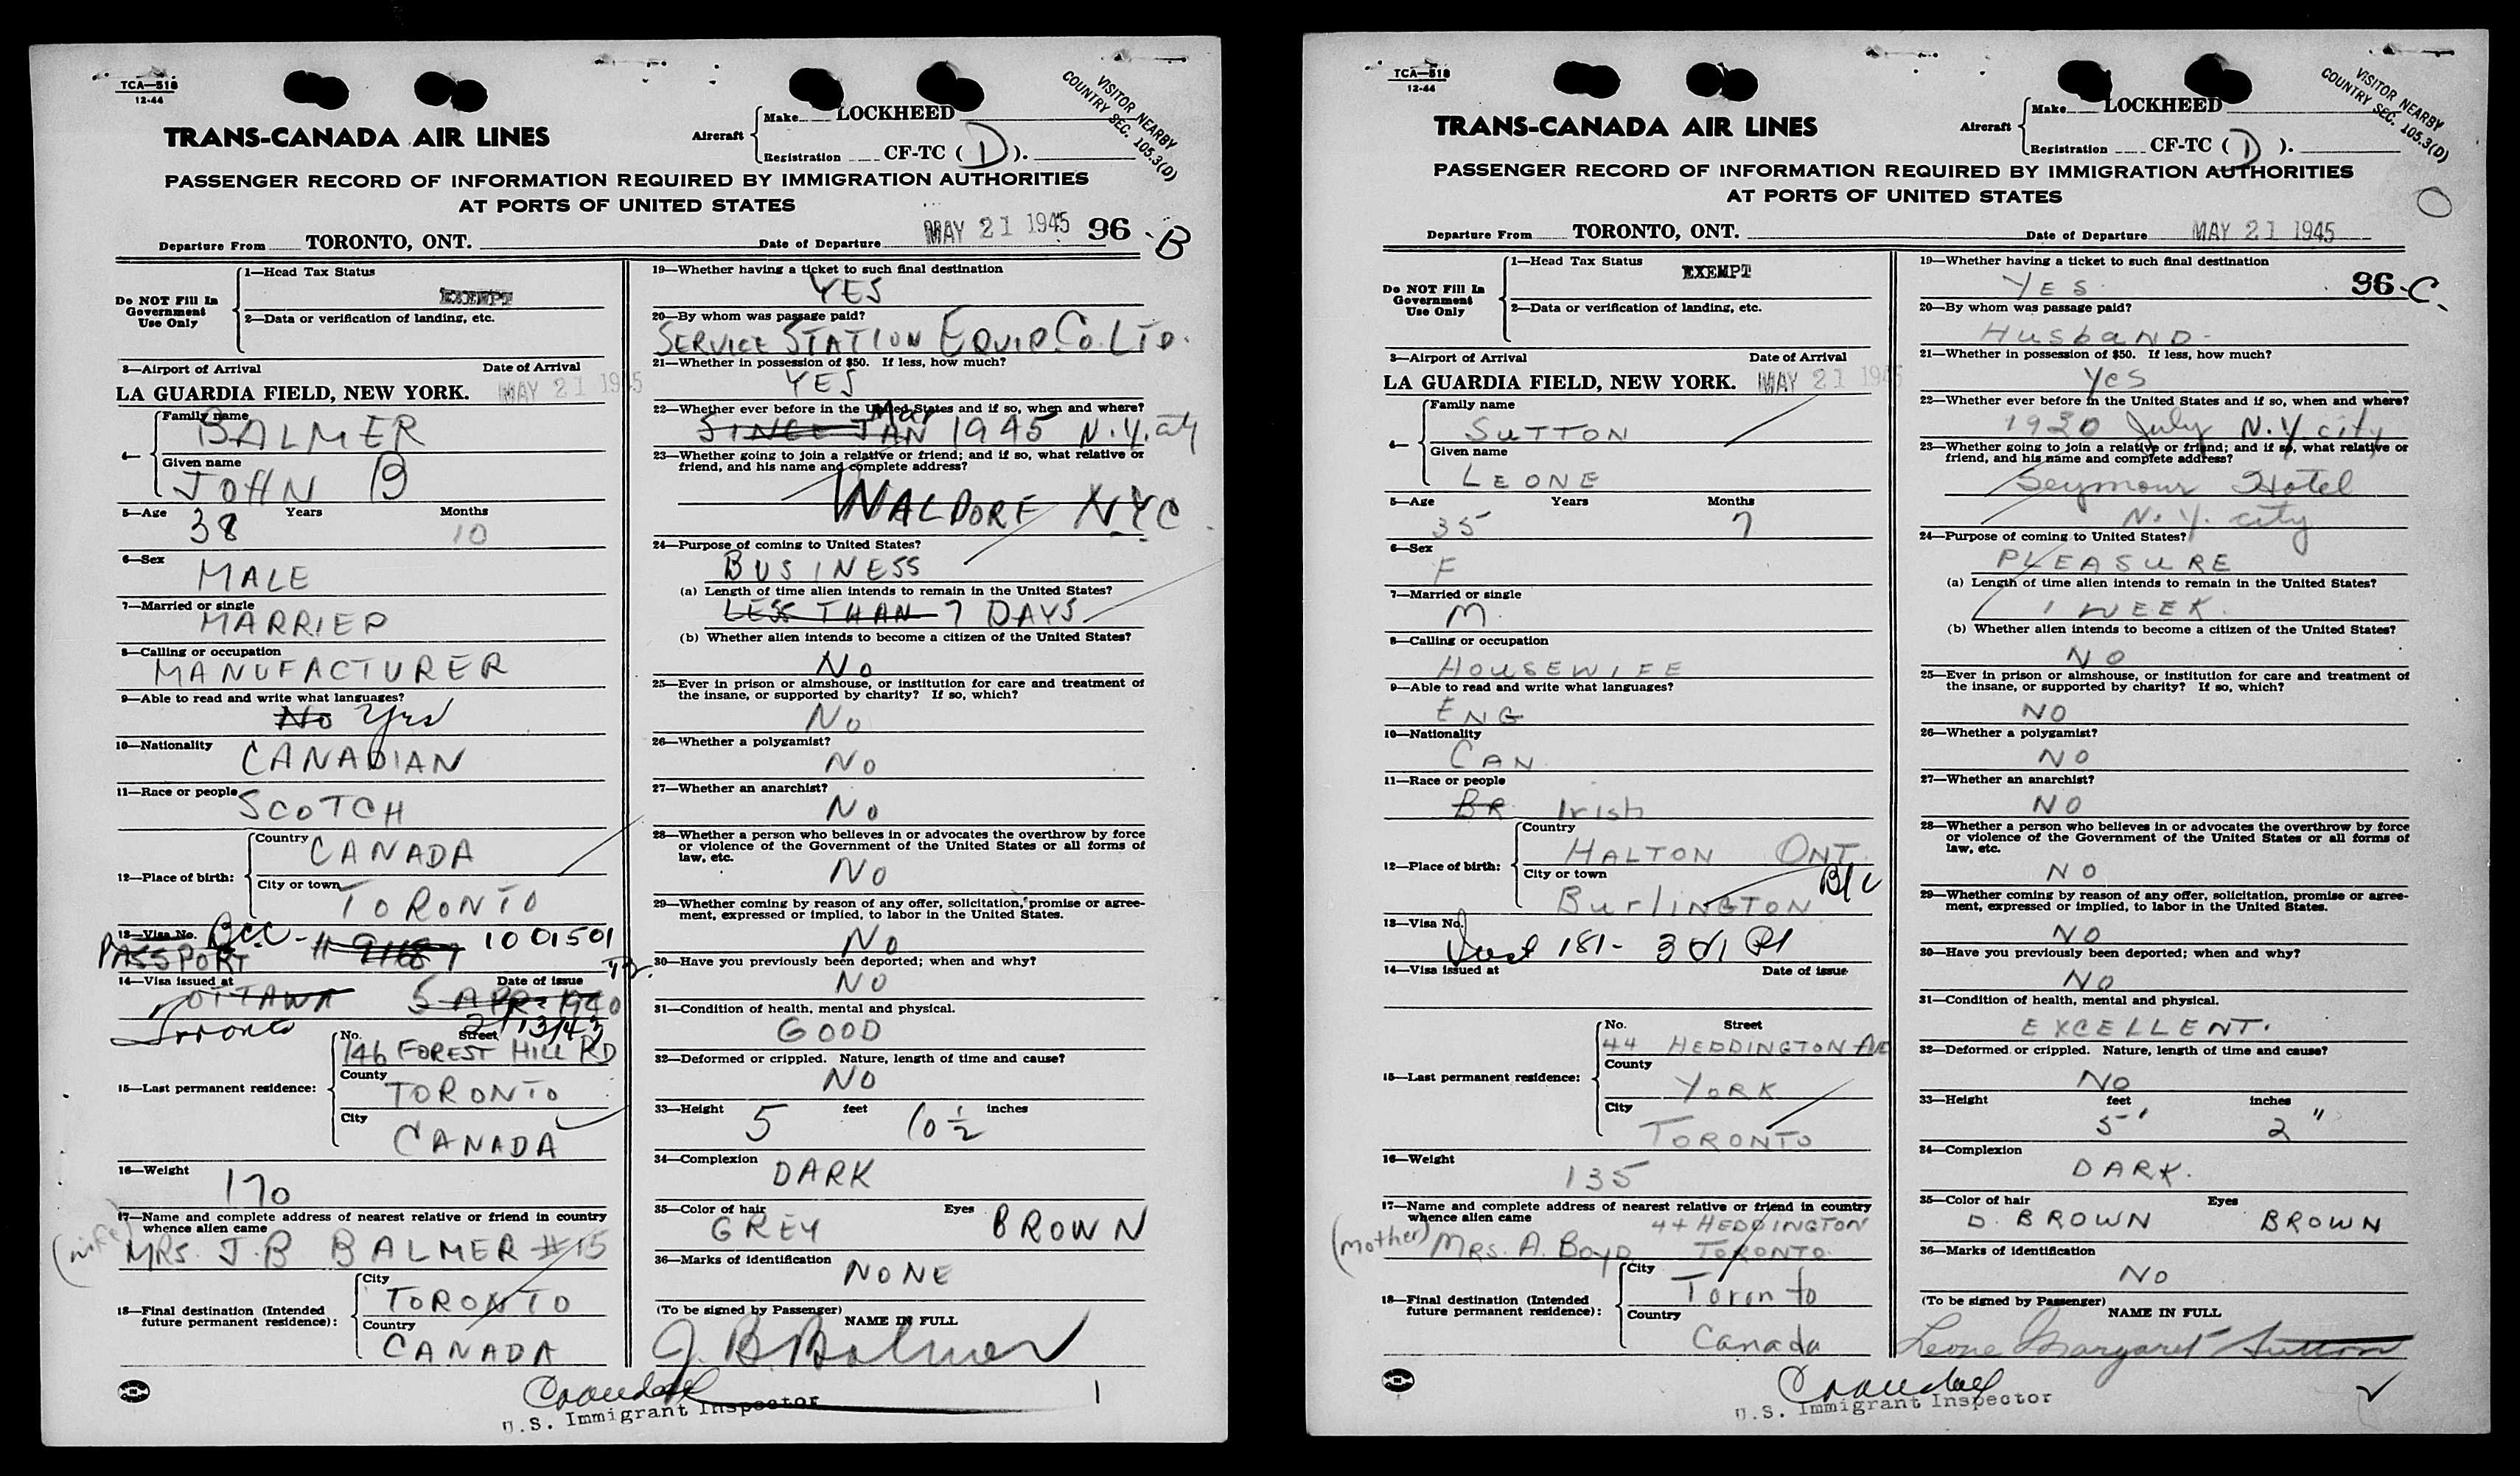 TCA—518
12-44
TRANS-CANADA AIR LINES
Aircraft
Make LOCKHEED
Registration CF-TC ( D ).
VISITOR NEARBY
COUNTRY SEC. 105.3(D)
PASSENGER RECORD OF INFORMATION REQUIRED BY IMMIGRATION AUTHORITIES
AT PORTS OF UNITED STATES
Departure From TORONTO, ONT. Date of Departure MAY 21 1945 96 - B
Do NOT Fill In
Government
Use Only
1—Head Tax Status
EXEMPT
2—Data or verification of landing, etc.
3—Airport of Arrival Date of Arrival
LA GUARDIA FIELD, NEW YORK. MAY 21 1945
4—
Family name
BALMER
Given name
JOHN B
5—Age 38 Years Months 10
6—Sex
MALE
7—Married or single
MARRIED
8—Calling or occupation
MANUFACTURER
9—Able to read and write what languages?
No Yes
10—Nationality
CANADIAN
11—Race or people
SCOTCH
12—Place of birth:
Country
CANADA
City or town
TORONTO
13—Visa No. BCC - # 1001501
PASSPORT
14—Visa issued at Date of issue
OTTAWA 5 APR 1940
Toronto 2/13/43
15—Last permanent residence:
No. Street
146 FOREST HILL RD
County
TORONTO
City
CANADA
16—Weight
170
17—Name and complete address of nearest relative or friend in country
whence alien came
(wife) MRS. J. B BALMER #15
18—Final destination (Intended
future permanent residence):
City
TORONTO
Country
CANADA
19—Whether having a ticket to such final destination
YES
20—By whom was passage paid?
SERVICE STATION EQUIP. CO. LTD.
21—Whether in possession of $50. If less, how much?
YES
22—Whether ever before in the United States and if so, when and where?
SINCE JAN Mar 1945 N.Y. city
23—Whether going to join a relative or friend; and if so, what relative or
friend, and his name and complete address?
WALDORF NYC
24—Purpose of coming to United States?
BUSINESS
(a) Length of time alien intends to remain in the United States?
LESS THAN 7 DAYS
(b) Whether alien intends to become a citizen of the United States?
No
25—Ever in prison or almshouse, or institution for care and treatment of
the insane, or supported by charity? If so, which?
No
26—Whether a polygamist?
No
27—Whether an anarchist?
No
28—Whether a person who believes in or advocates the overthrow by force
or violence of the Government of the United States or all forms of
law, etc.
No
29—Whether coming by reason of any offer, solicitation, promise or agree-
ment, expressed or implied, to labor in the United States.
No
30—Have you previously been deported; when and why?
NO
31—Condition of health, mental and physical.
GOOD
32—Deformed or crippled. Nature, length of time and cause?
NO
33—Height 5 feet 10 1/2 inches
34—Complexion
DARK
35—Color of hair Eyes
GREY BROWN
36—Marks of identification
NONE
(To be signed by Passenger)
NAME IN FULL
J. B. Balmer
U.S. Immigrant Inspector
1
TCA—518
12-44
TRANS-CANADA AIR LINES
Aircraft
Make LOCKHEED
Registration CF-TC ( D ).
VISITOR NEARBY
COUNTRY SEC. 105.3(D)
PASSENGER RECORD OF INFORMATION REQUIRED BY IMMIGRATION AUTHORITIES
AT PORTS OF UNITED STATES
Departure From TORONTO, ONT. Date of Departure MAY 21 1945
Do NOT Fill In
Government
Use Only
1—Head Tax Status
EXEMPT
2—Data or verification of landing, etc.
3—Airport of Arrival Date of Arrival
LA GUARDIA FIELD, NEW YORK. MAY 21 1945
4—
Family name
SUTTON
Given name
LEONE
5—Age Years Months
35 7
6—Sex
F
7—Married or single
M.
8—Calling or occupation
HOUSEWIFE
9—Able to read and write what languages?
ENG
10—Nationality
CAN
11—Race or people
BR Irish
12—Place of birth:
Country
HALTON ONT.
City or town
BurlINGTON B/C
13—Visa No.
181-
14—Visa issued at Date of issue
15—Last permanent residence:
No. Street
44 HEDDINGTON AVE
County
YORK
City
TORONTO
16—Weight
135
17—Name and complete address of nearest relative or friend in country
whence alien came
44 HEDDINGTON
(mother) MRS. A. BOYD TORONTO
18—Final destination (Intended
future permanent residence):
City
Toronto
Country
Canada
19—Whether having a ticket to such final destination
YES 96-C.
20—By whom was passage paid?
HusbAND.
21—Whether in possession of $50. If less, how much?
Yes
22—Whether ever before in the United States and if so, when and where?
1930 July N.Y. city
23—Whether going to join a relative or friend; and if so, what relative or
friend, and his name and complete address?
Seymour Hotel
N.Y. city
24—Purpose of coming to United States?
PLEASURE
(a) Length of time alien intends to remain in the United States?
1 WEEK.
(b) Whether alien intends to become a citizen of the United States?
NO
25—Ever in prison or almshouse, or institution for care and treatment of
the insane, or supported by charity? If so, which?
NO
26—Whether a polygamist?
NO
27—Whether an anarchist?
NO
28—Whether a person who believes in or advocates the overthrow by force
or violence of the Government of the United States or all forms of
law, etc.
NO
29—Whether coming by reason of any offer, solicitation, promise or agree-
ment, expressed or implied, to labor in the United States.
NO
30—Have you previously been deported; when and why?
NO
31—Condition of health, mental and physical.
EXCELLENT.
32—Deformed or crippled. Nature, length of time and cause?
NO
33—Height feet inches
5' 2"
34—Complexion
DARK.
35—Color of hair Eyes
D. BROWN BROWN
36—Marks of identification
NO
(To be signed by Passenger)
NAME IN FULL
Leone Margaret Sutton
U.S. Immigrant Inspector